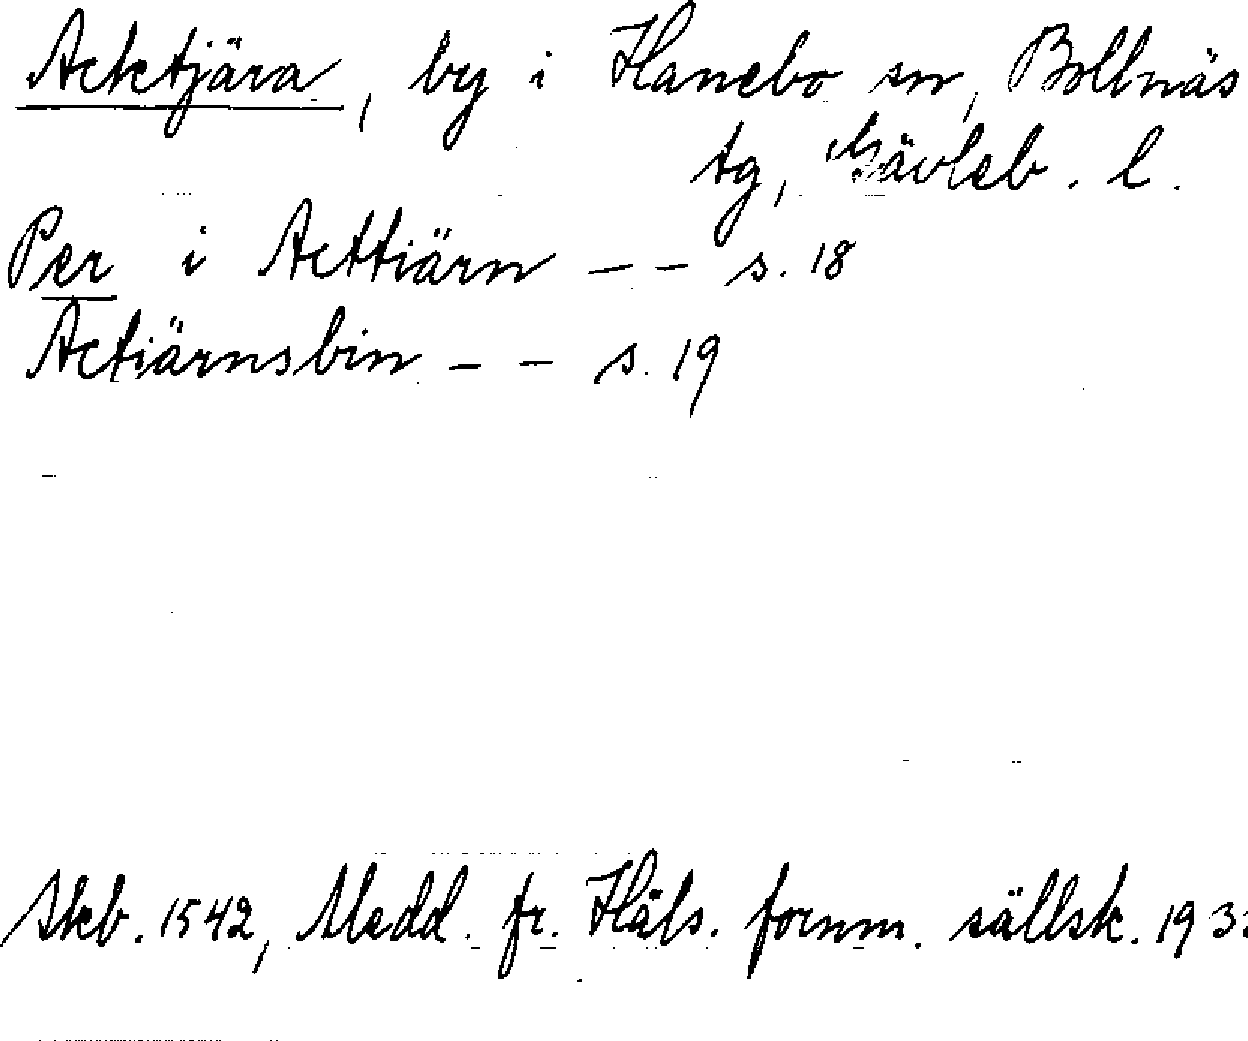 Acktjära, by i Hanebo sn, Bollnäs
tg, Gävleb. l.
Per i Acttiärn – – s. 18
Actiärnsbin – – s. 19
Skb. 1542, Medd. fr. Häls. fornm. sällsk. 193